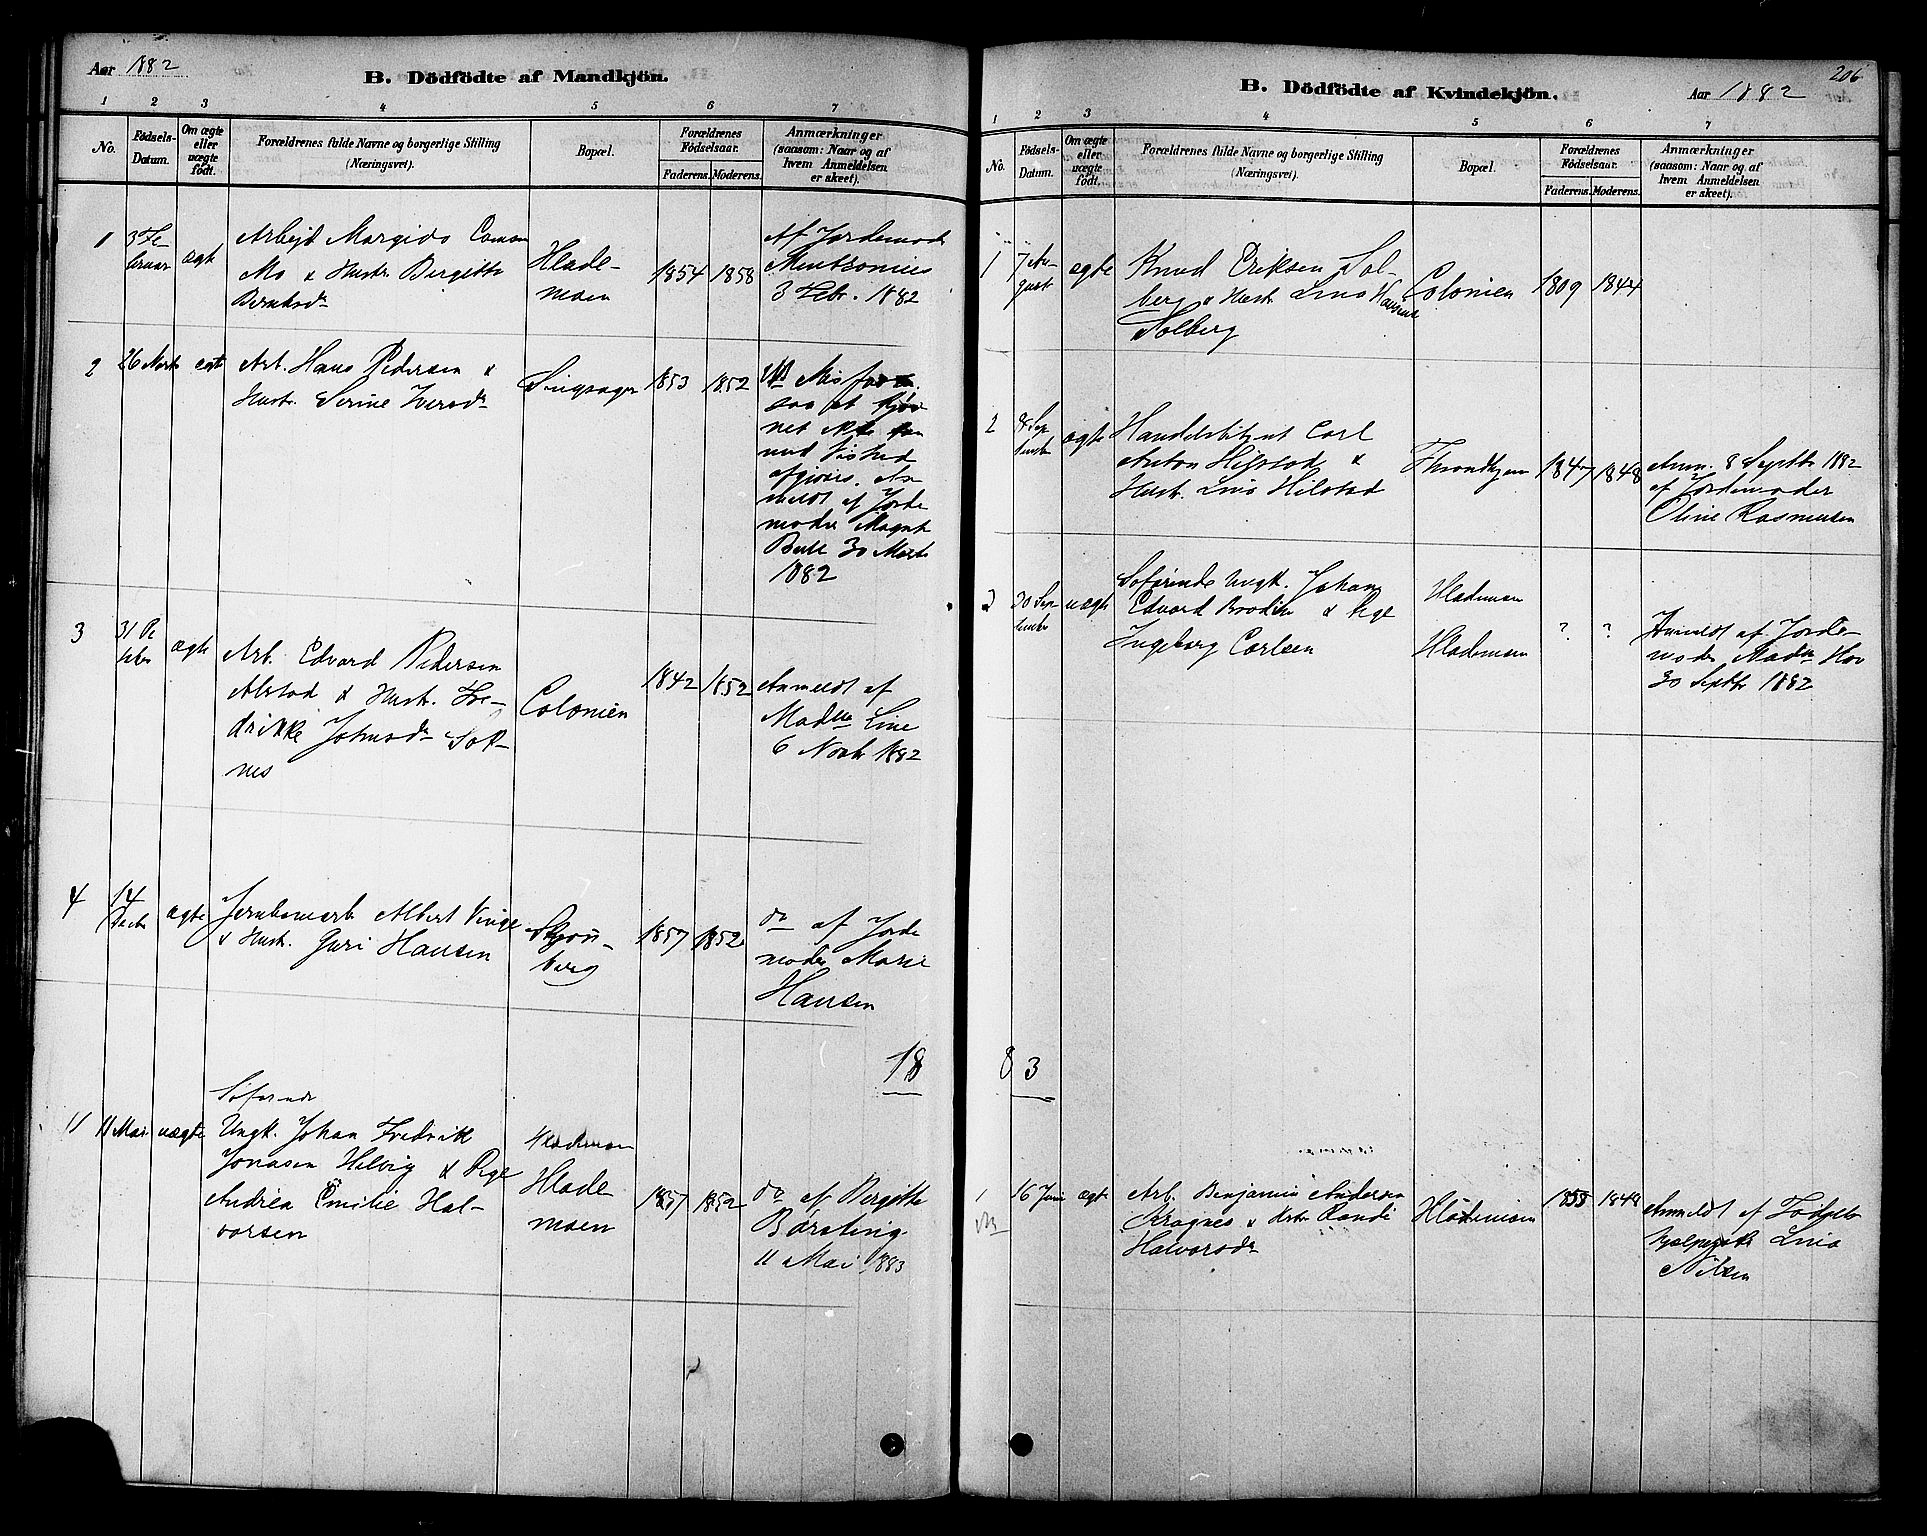 Aar 1882
B. Dödfödte af Mandkjön.
1 2 3 4 5 6 7
No.
Födsels-Datum.
Om ægte eller uægte födt.
Forældrenes fulde Navne og borgerlige Stilling (Næringsvei).
Bopæl.
Forældrenes Födselsaar.
Faderens. Moderens.
Anmærkninger (saasom: Naar og af hvem Anmeldelsen er skeet).
1 3 Fe-
bruar ægte
Arbeid Margido
Mo & Hustr. Birgitte
Berntsdr
Hlade-
moen
1854 1858
Af Jordemod
3 Febr. 1882
2 26 Marts ægte
Arb. Hans Pedersen &
Hustr. Serine Iversdr
Singsager
1853 1852
saa at Kjøn-
net ikke kan
med Vished
afgives. An-
meldt af Jorde
moder
Bull 30 Marts
1882
3 31 Oc
tober ægte
Arb. Edvard Pedersen
Alstad & Hustr. Fre-
drikke Johnsdr Sok-
nes
Colonien
1842 1852
Anmeldt af
Madme Line
6 Novbr 1882
4 14
Decbr ægte
Jernbanearb Albert Vinge
& Hustr. Guri Hansen
Skjøn-
berg
1857 1852
do af Jorde
moder Marie
Hansen
18
11 11 Mai uægte
Søfarende
Ungk. Johan Fredrik
Jonasen Helvig & Pige
Andrea Emilie Hal-
vorsen
Hlademoen
Hlade-
moen
1857 1852
do af Birgitte
Børseting
11 Mai 1883
206
B. Dödfödte af Kvindekjön.
Aar 1882
1 2 3 4 5 6 7
No.
Födsels-Datum.
Om ægte eller uægte födt.
Forældrenes fulde Navne og borgerlige Stilling (Næringsvei).
Bopæl.
Forældrenes Födselsaar.
Faderens. Moderens.
Anmærkninger (saasom: Naar og af hvem Anmeldelsen er skeet).
1 7 Au-
gust ægte
Knud Eriksen Sol-
berg & Hustr. Lina
Solberg
Colonien
1809 1844
2 8 Sep
tember ægte
Carl
Anton Hilstad &
Hustr. Lina Hilstad
Throndhjem
1847 1848
Anm. 8 Septbr 1882
af Jordemoder
Oline Rasmussen
3 30 Sep-
tember uægte
Søfarende Ungk. Johan
Edvard Brodin & Pige
Ingeborg Carlsen
Hlademoen
Hlademoen
? ?
Anmeldt af Jorde-
moder Madme Hov
30 Septbr 1882
83
1 16 Juni ægte
Arb. Benjamin Andersen
Kragnes & Hustr Randi
Halvorsdr
Hlademoen
1855 1848
Anmeldt af Fødsels
hjælperske Lina
Nilsen